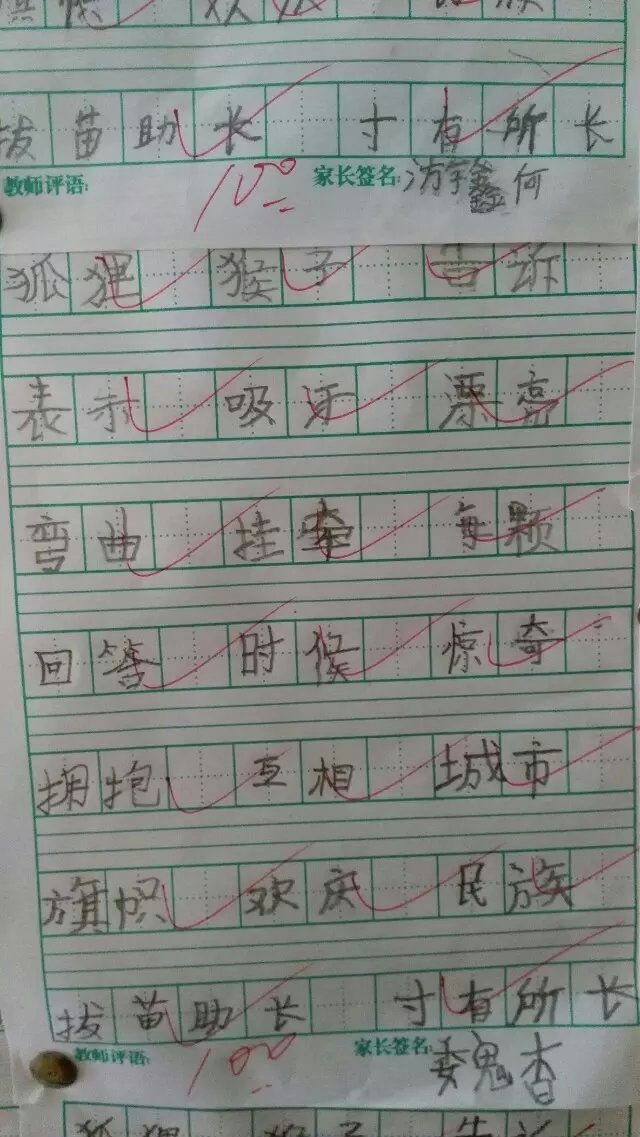 拔苗助长 寸有所长
教师评语: 100 家长签名: 游锌鑫何
狐狸 猴子 告诉
表示 吸牙 漂亮
弯曲 挂牵 每颗
回答 时候 惊奇
拥抱 互相 城市
旗帜 欢庆 民族
拔苗助长 寸有所长
教师评语: 100 家长签名: 委鬼杏
狐狸 猴子 告诉